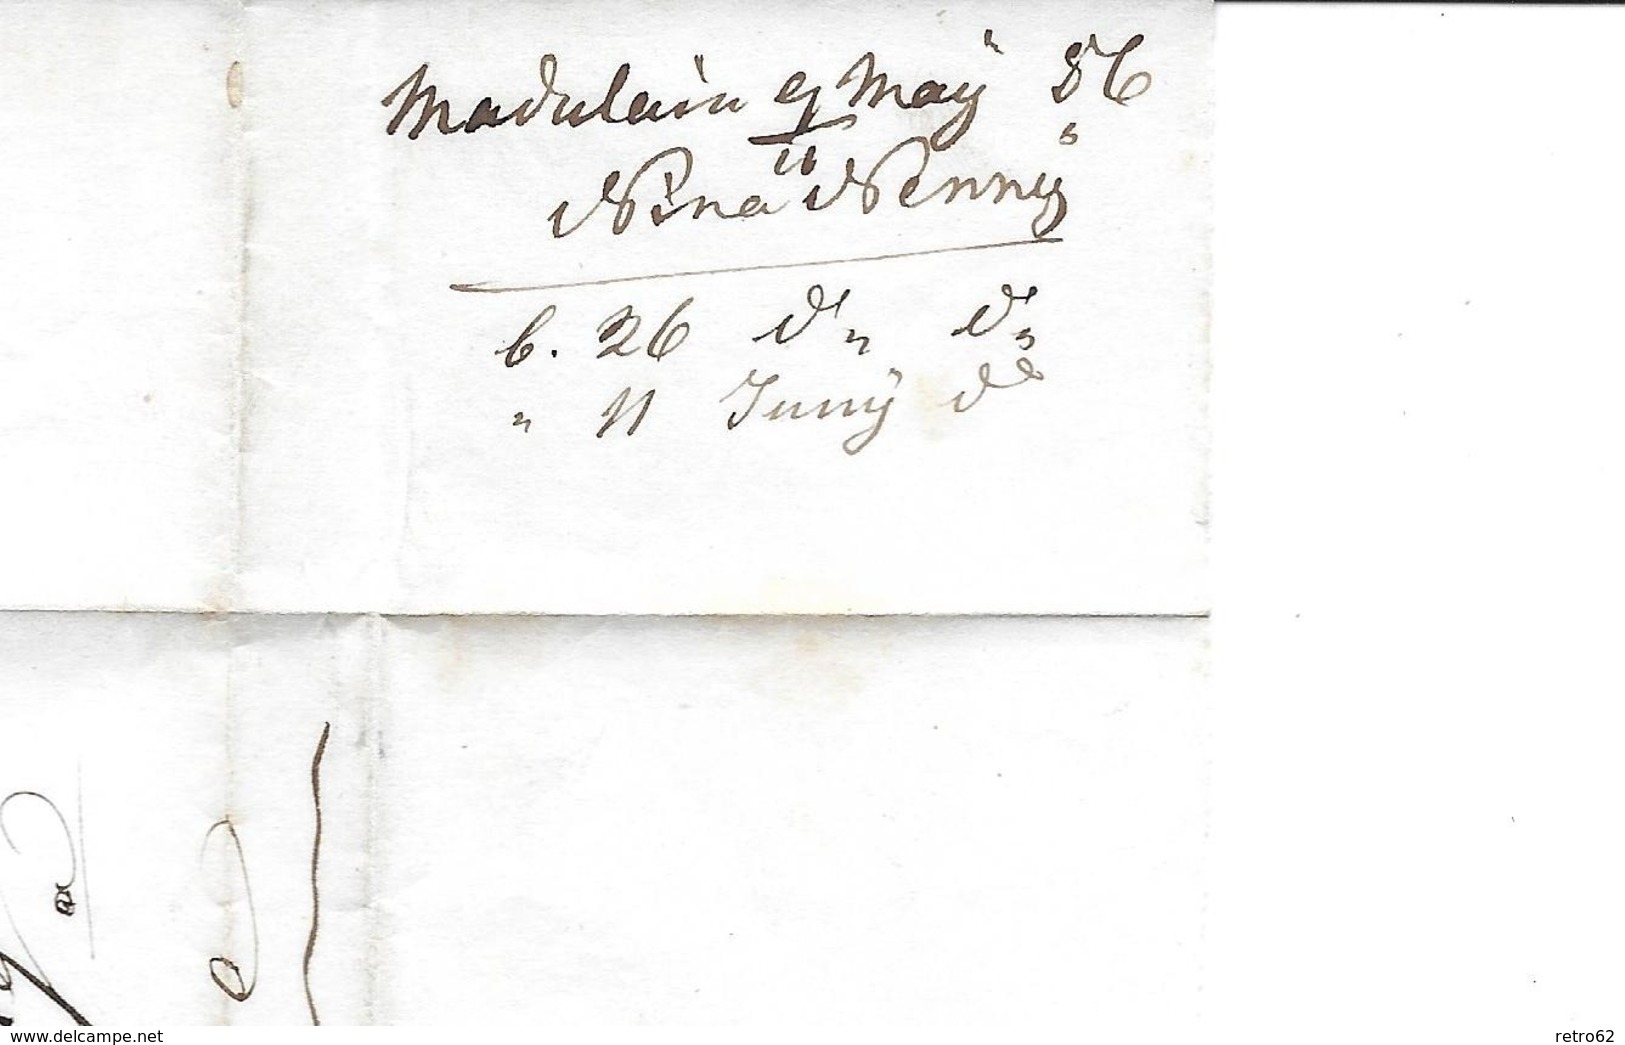 Madulein 9 Maÿ 56
Nina Nenny
b. 26 d„ d„
„ 11 Junÿ do
www.delcampe.net
retro62